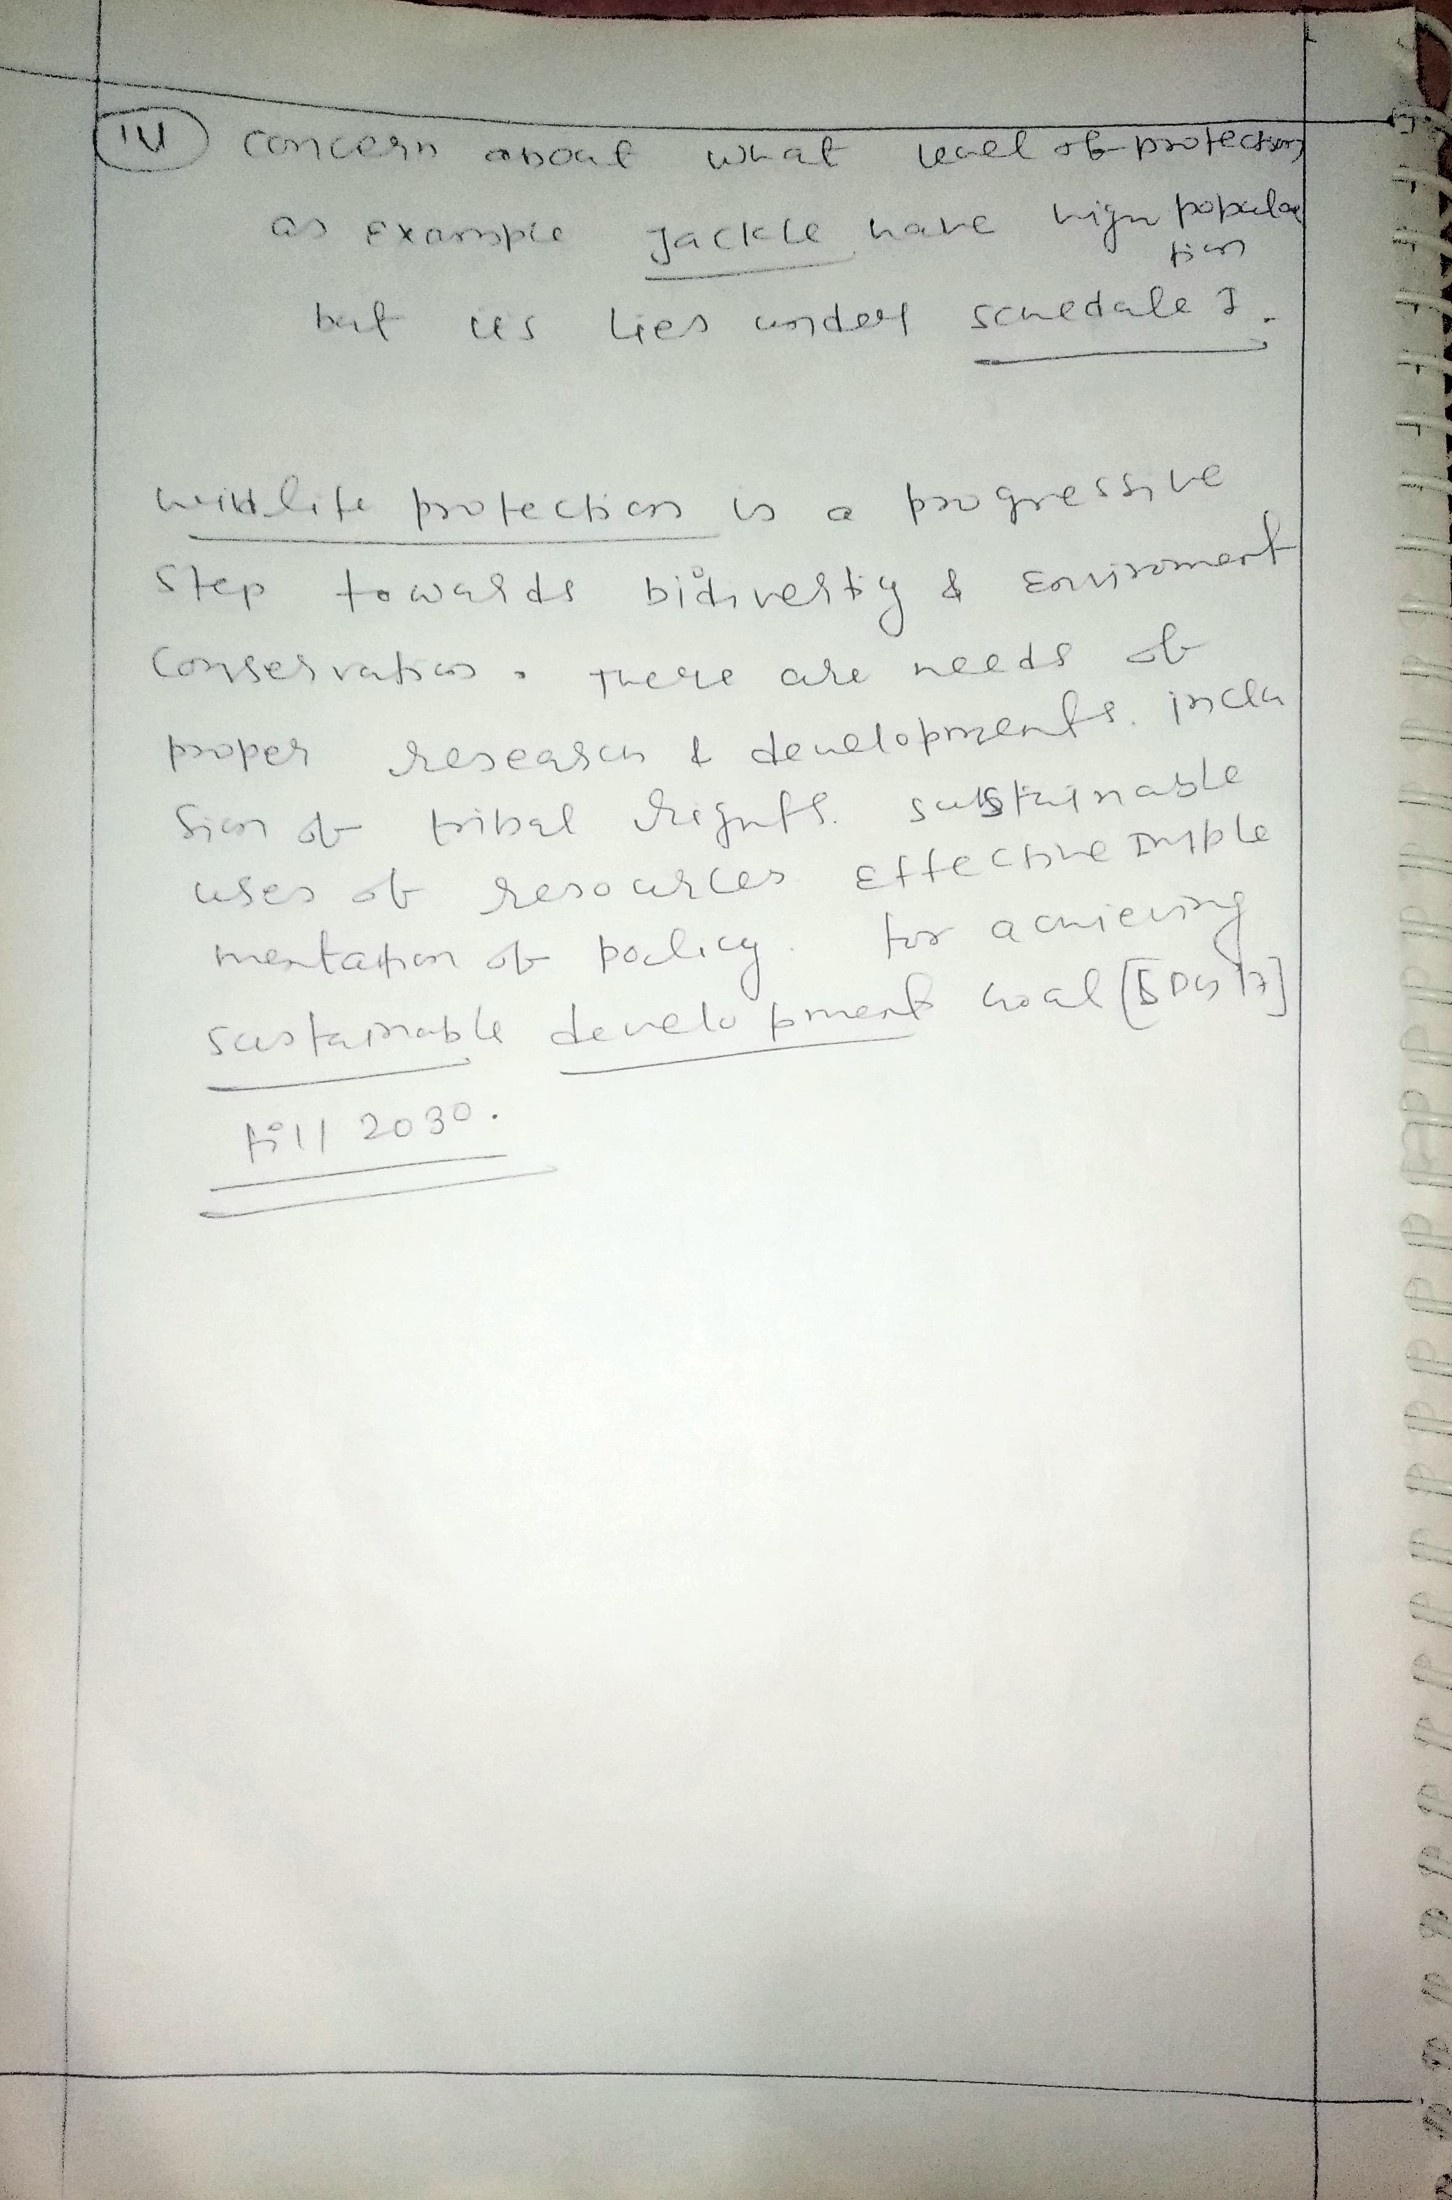 IV concern about what level of protection
as Example Jackle have high popula
tion
but its lies under schedule I.
wildlife protection is a progressive
step towards bidiversity & Enviroment
conservation. There are needs of
proper research & developments. inclu
sion of tribal rights. sustainable
uses of resources Effective Imple
mentation of poalicy. for achieving
sustainable development Goal [SDG 17]
till 2030.